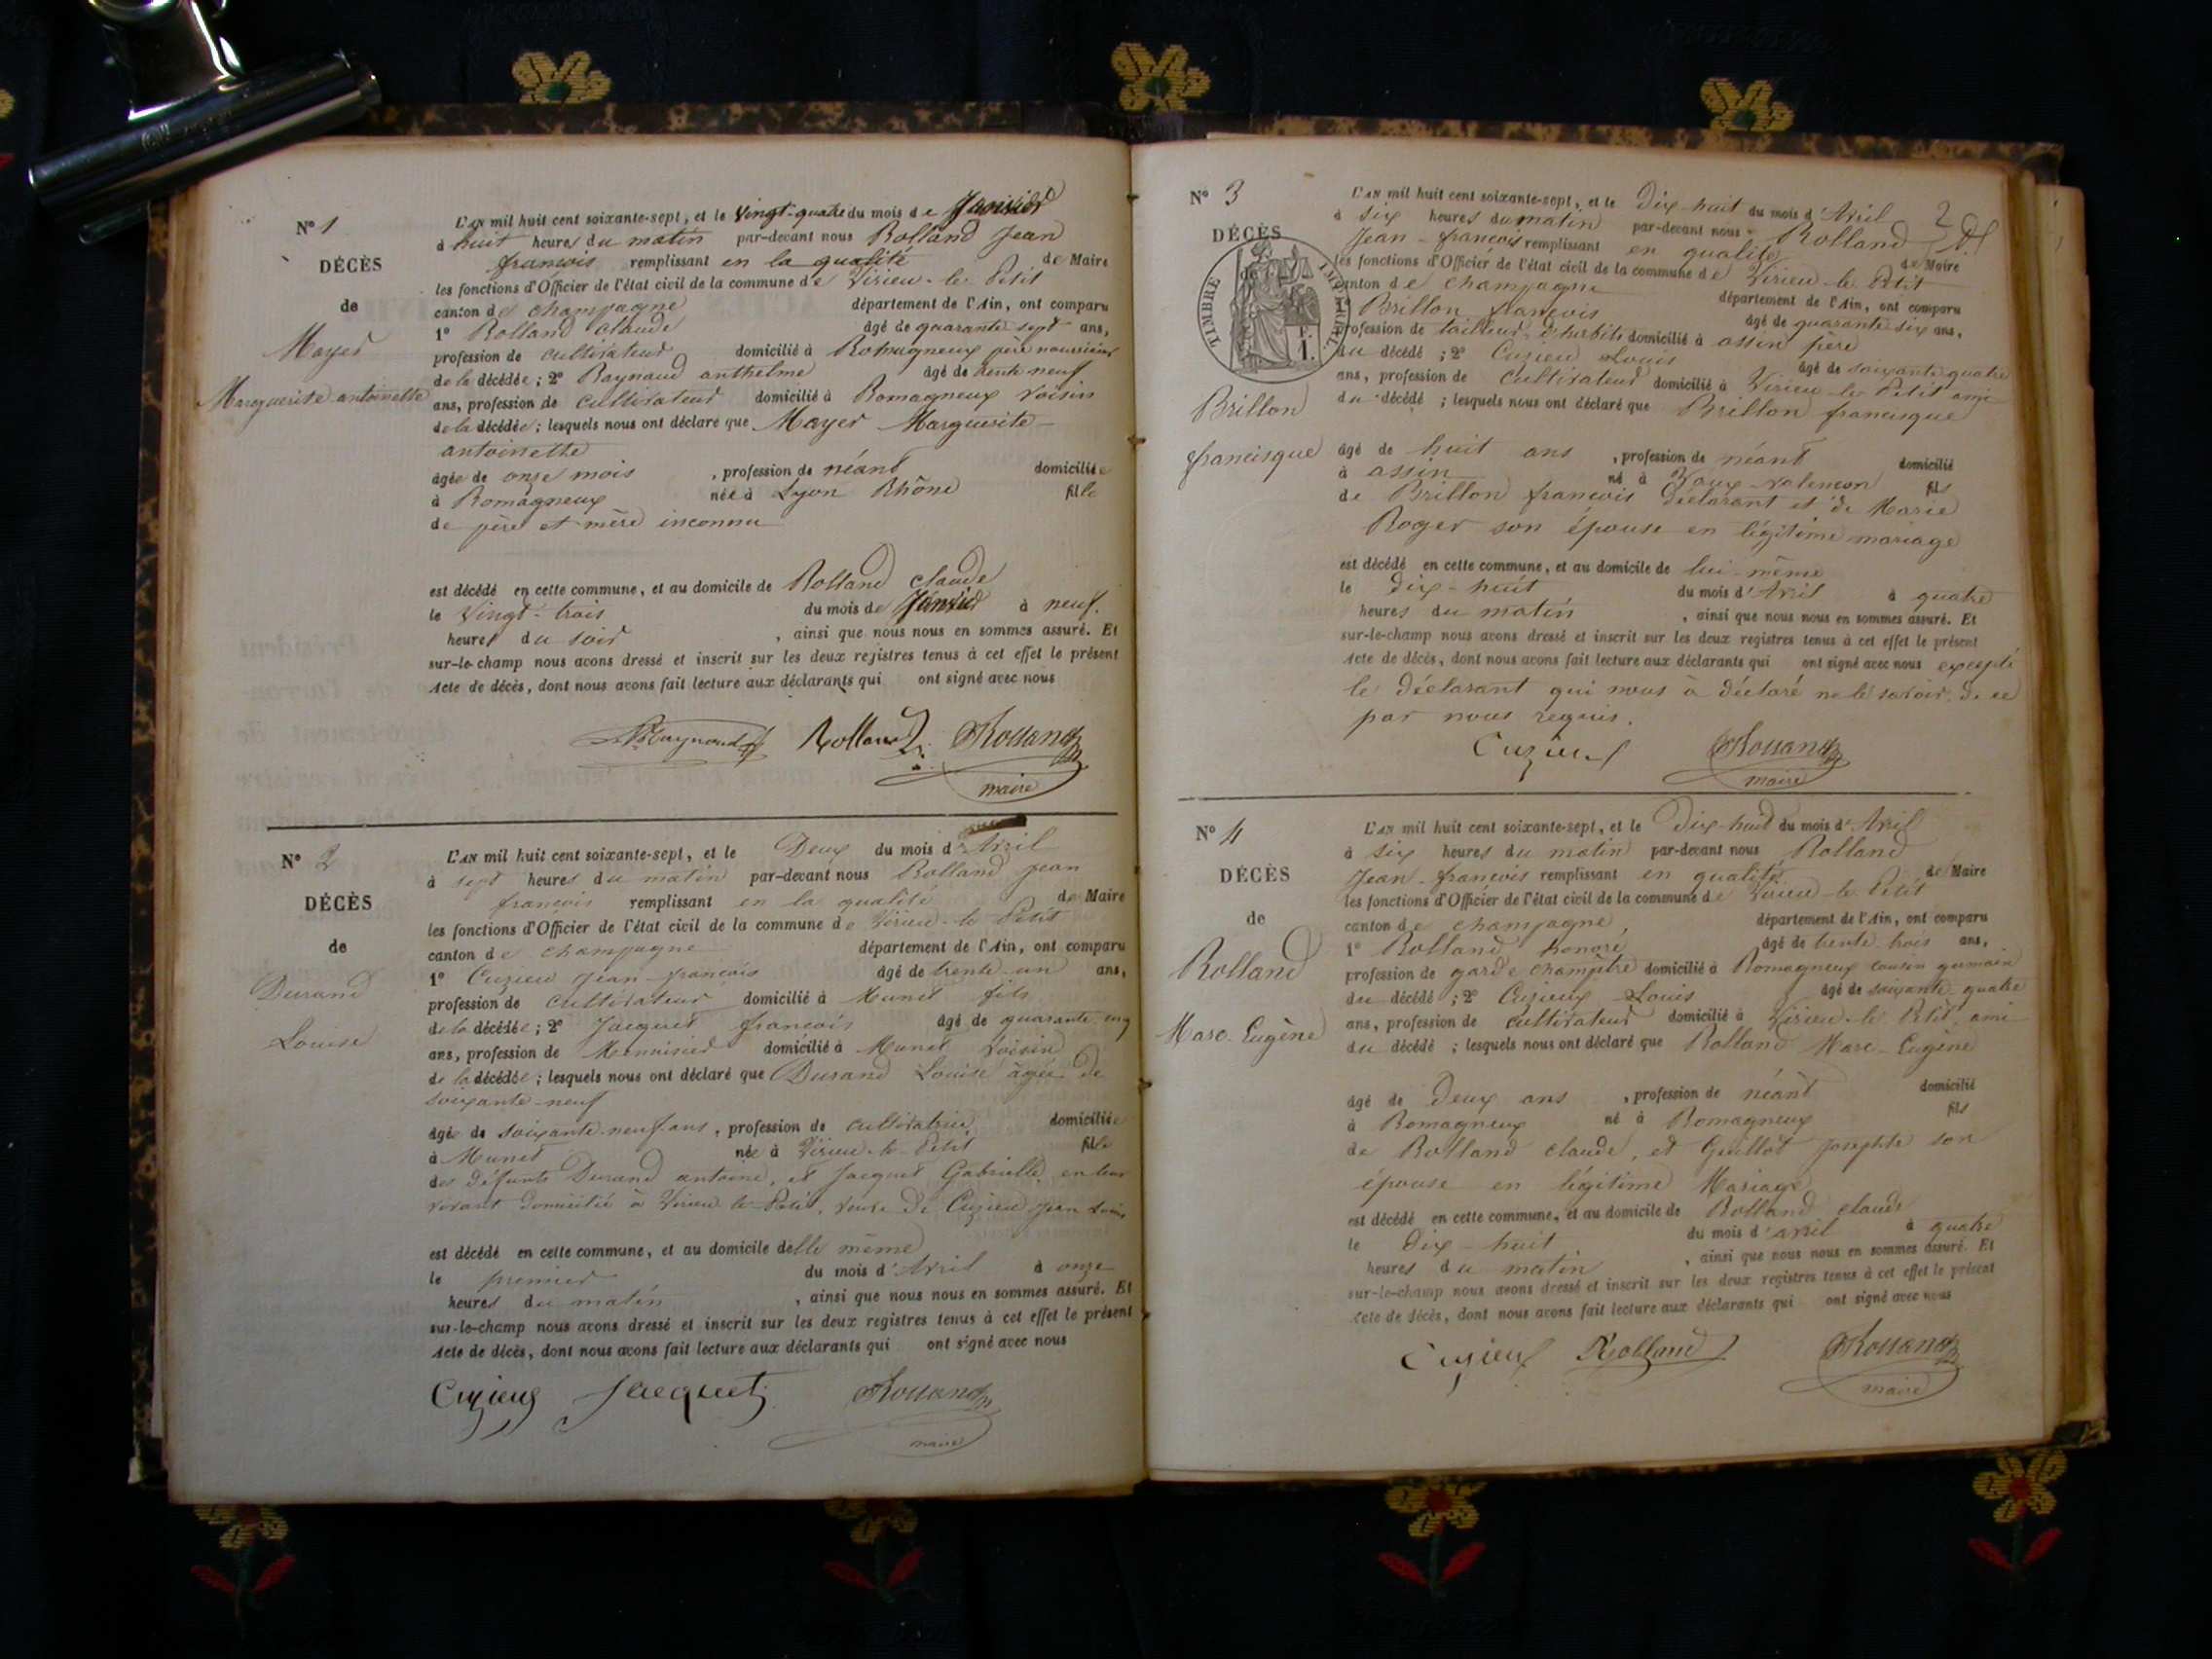 N° 1
DÉCÈS
de
Mayer
Marguerite antoinette
L'AN mil huit cent soixante-sept, et le Vingt-quatre du mois de Janvier
à huit heures du matin par-devant nous Rolland Jean
françois remplissant en la qualité de Maire
les fonctions d'Officier de l'état civil de la commune de Virieu-le-Petit
canton de champagne département de l'Ain, ont comparu
1° Rolland claude âgé de quarante sept ans,
profession de cultivateur domicilié à Romagneux père nourricier
de la décédée ; 2° Raynaud anthelme âgé de trente neuf
ans, profession de cultivateur domicilié à Romagneux voisin
de la décédée ; lesquels nous ont déclaré que Mayer Marguerite
antoinette
âgée de onze mois , profession de néant domiciliée
à Romagneux née à Lyon Rhône fille
de père et mère inconnu
est décédé en cette commune, et au domicile de Rolland claude
le Vingt-trois du mois de Janvier à neuf
heures du soir , ainsi que nous nous en sommes assuré. Et
sur-le-champ nous avons dressé et inscrit sur les deux registres tenus à cet effet le présent
Acte de décès, dont nous avons fait lecture aux déclarants qui ont signé avec nous
Raynaud Rolland Rolland
maire
N° 2
DÉCÈS
de
Durand
Louise
L'AN mil huit cent soixante-sept, et le Deux du mois d'Avril
à sept heures du matin par-devant nous Rolland Jean
françois remplissant en la qualité de Maire
les fonctions d'Officier de l'état civil de la commune de Virieu-le-Petit
canton de champagne département de l'Ain, ont comparu
1° Cuzieu Jean-françois âgé de trente-un ans,
profession de cultivateur domicilié à Munet fils
de la décédée ; 2° Jacquet françois âgé de quarante cinq
ans, profession de Menuisier domicilié à Munet Voisin
de la décédée ; lesquels nous ont déclaré que Durand Louise âgée de
soixante-neuf
âgée de soixante-neuf ans , profession de cultivatrice domiciliée
à Munet née à Virieu-le-Petit fille
des défunts Durand antoine, et Jacquet Gabrielle, en leur
vivant domicilié à Virieu-le-Petit, veuve de Cuzieu Jean Louis
est décédé en cette commune, et au domicile delle même
le premier du mois d'Avril à onze
heures du matin , ainsi que nous nous en sommes assuré. Et
sur-le-champ nous avons dressé et inscrit sur les deux registres tenus à cet effet le présent
Acte de décès, dont nous avons fait lecture aux déclarants qui ont signé avec nous
Cuzieux Jacquet Rolland
maire
N° 3
DÉCÈS
de
TIMBRE IMPÉRIAL
F.
1.
Brillon
francisque
2
L'AN mil huit cent soixante-sept, et le Dix-huit du mois d'Avril
à six heures du matin par-devant nous Rolland
Jean-françois remplissant en qualité de Maire
les fonctions d'Officier de l'état civil de la commune de Virieu-le-Petit
canton de champagne département de l'Ain, ont comparu
Brillon françois âgé de quarante-six ans,
profession de tailleur d'habits domicilié à assin père
du décédé ; 2° Cuzieu Louis âgé de soixante quatre
ans, profession de cultivateur domicilié à Virieu-le-Petit ami
du décédé ; lesquels nous ont déclaré que Brillon francisque
âgé de huit ans , profession de néant domicilié
à assin né à Vaux-valemon fils
de Brillon françois déclarant et de Marie
Roger son épouse en légitime mariage
est décédé en cette commune, et au domicile de lui-même
le Dix-huit du mois d'Avril à quatre
heures du matin , ainsi que nous nous en sommes assuré. Et
sur-le-champ nous avons dressé et inscrit sur les deux registres tenus à cet effet le présent
Acte de décès, dont nous avons fait lecture aux déclarants qui ont signé avec nous excepté
le déclarant qui nous à déclaré ne le savoir de ce
par nous requis.
Cuzieux Rolland
maire
N° 4
DÉCÈS
de
Rolland
Marc-Eugène
L'AN mil huit cent soixante-sept, et le Dix-huit du mois d'Avril
à six heures du matin par-devant nous Rolland
Jean-françois remplissant en qualité de Maire
les fonctions d'Officier de l'état civil de la commune de Virieu-le-Petit
canton de champagne, département de l'Ain, ont comparu
1° Rolland honoré âgé de trente-trois ans,
profession de garde champêtre domicilié à Romagneux cousin germain
du décédé ; 2° Cuzieux Louis âgé de soixante quatre
ans, profession de cultivateur domicilié à Virieu-le-Petit ami
du décédé ; lesquels nous ont déclaré que Rolland Marc-Eugène
âgé de Deux ans , profession de néant domicilié
à Romagneux né à Romagneux fils
de Rolland claude, et Guillot Josephte son
épouse en légitime Mariage
est décédé en cette commune, et au domicile de Rolland claude
le Dix-huit du mois d'avril à quatre
heures du matin , ainsi que nous nous en sommes assuré. Et
sur-le-champ nous avons dressé et inscrit sur les deux registres tenus à cet effet le présent
Acte de décès, dont nous avons fait lecture aux déclarants qui ont signé avec nous
Cuzieux Rolland Rolland
maire